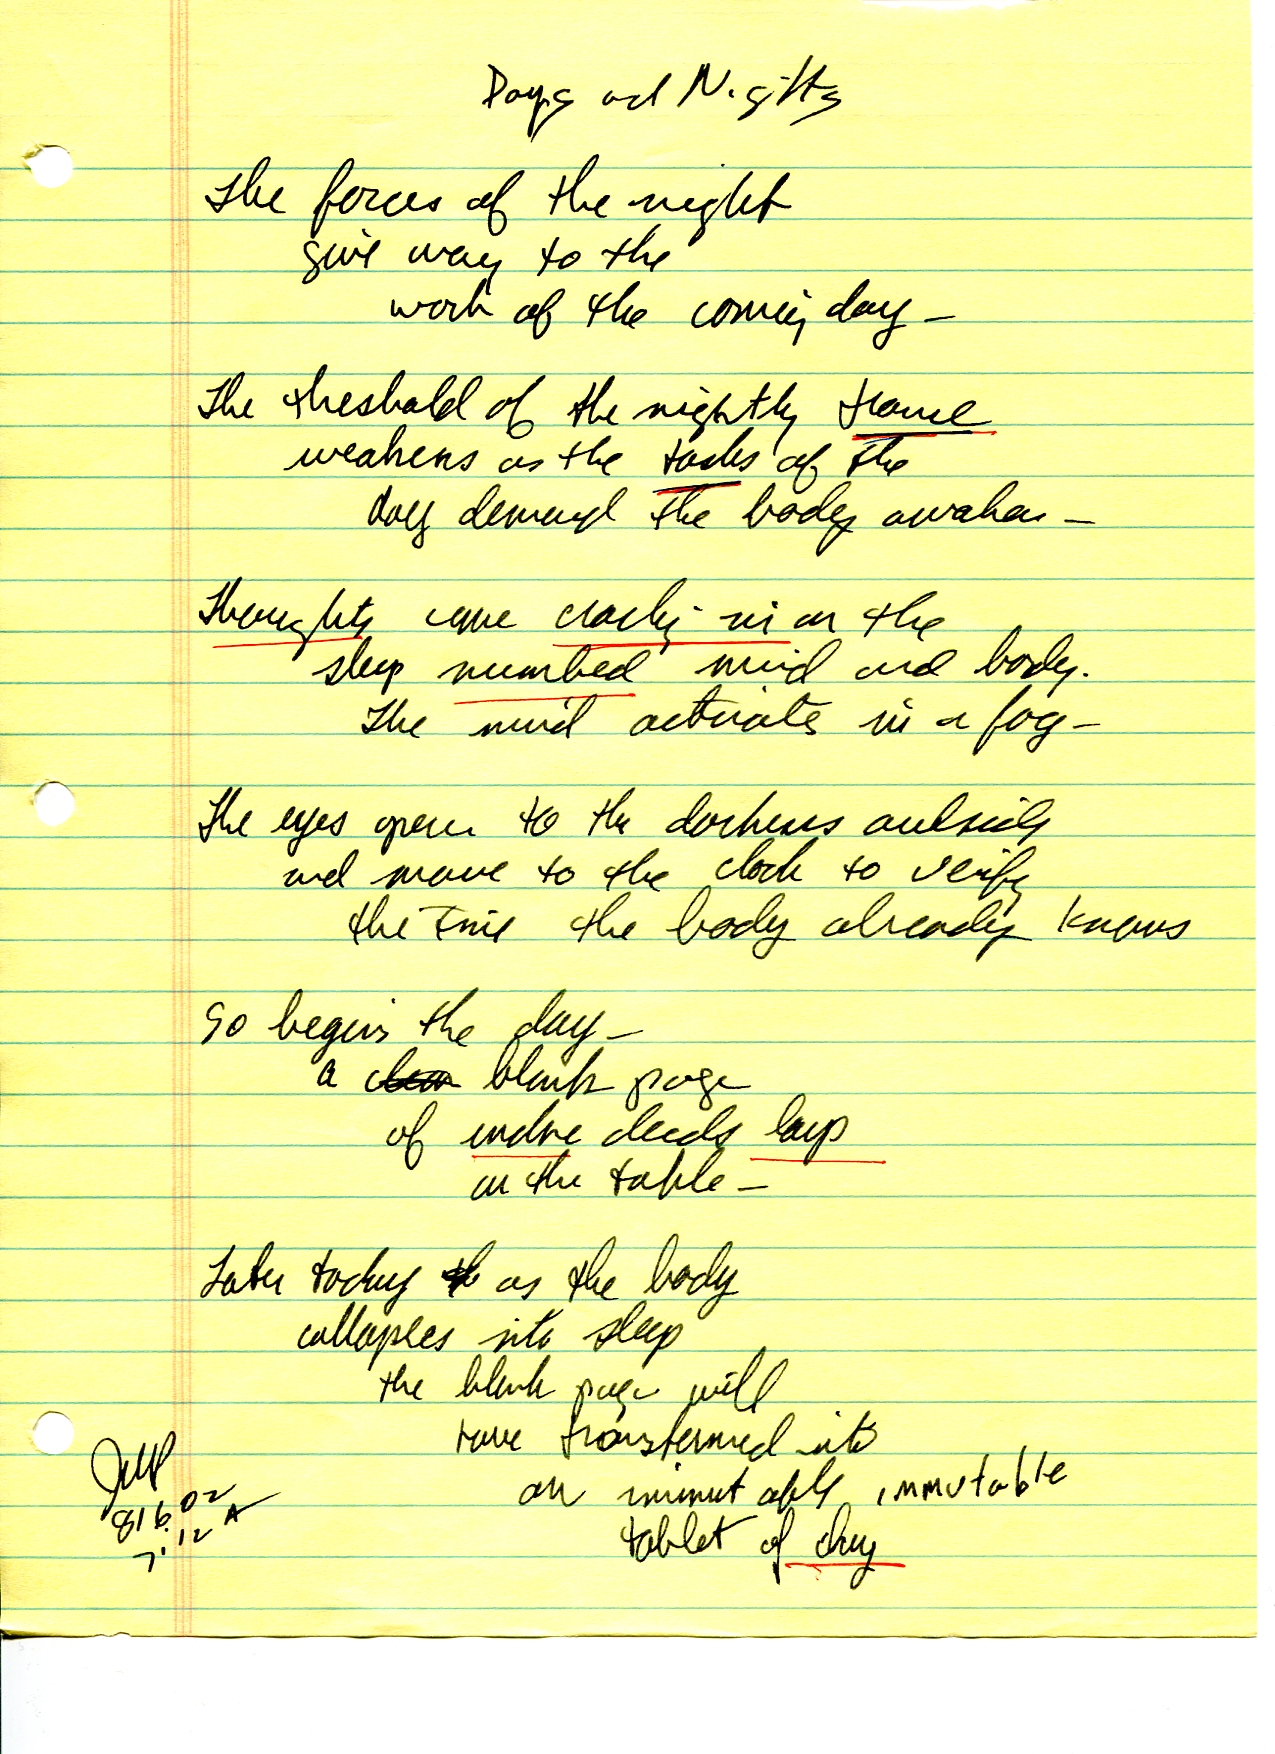 Days and Nights
The forces of the night
give way to the
work of the coming day —
The threshold of the nightly trance
weakens as the tasks of the
day demand the body awaken —
Thoughts come crashing in on the
sleep numbed mind and body.
The mind activates in a fog —
The eyes open to the darkness outside
and move to the clock to verify
the time the body already knows
So begins the day —
a blank page
of undone deeds lays
on the table —
Later today as the body
collapses into sleep
the blank page will
have transformed into
an immutable immutable
tablet of day
81602
7:12 A